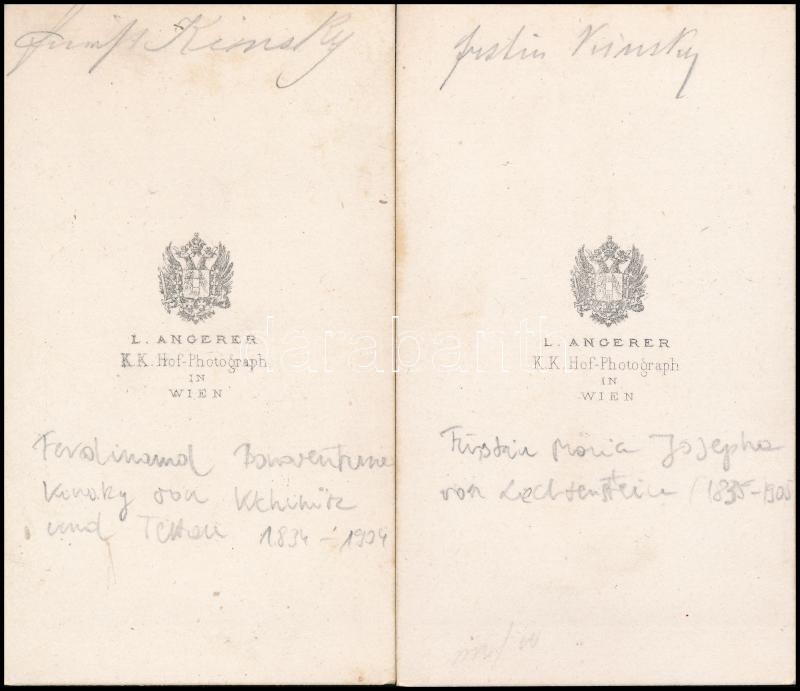 Fürst Kinsky
L. ANGERER
K.K. Hof-Photograph
IN
WIEN
Ferdinand Bonaventura
Kinsky von Wchinitz
und Tettau 1834-1904
Fürstin Kinsky
L. ANGERER
K.K. Hof-Photograph
IN
WIEN
Fürstin Maria Josepha
von Liechtenstein (1835-1905
darabanth